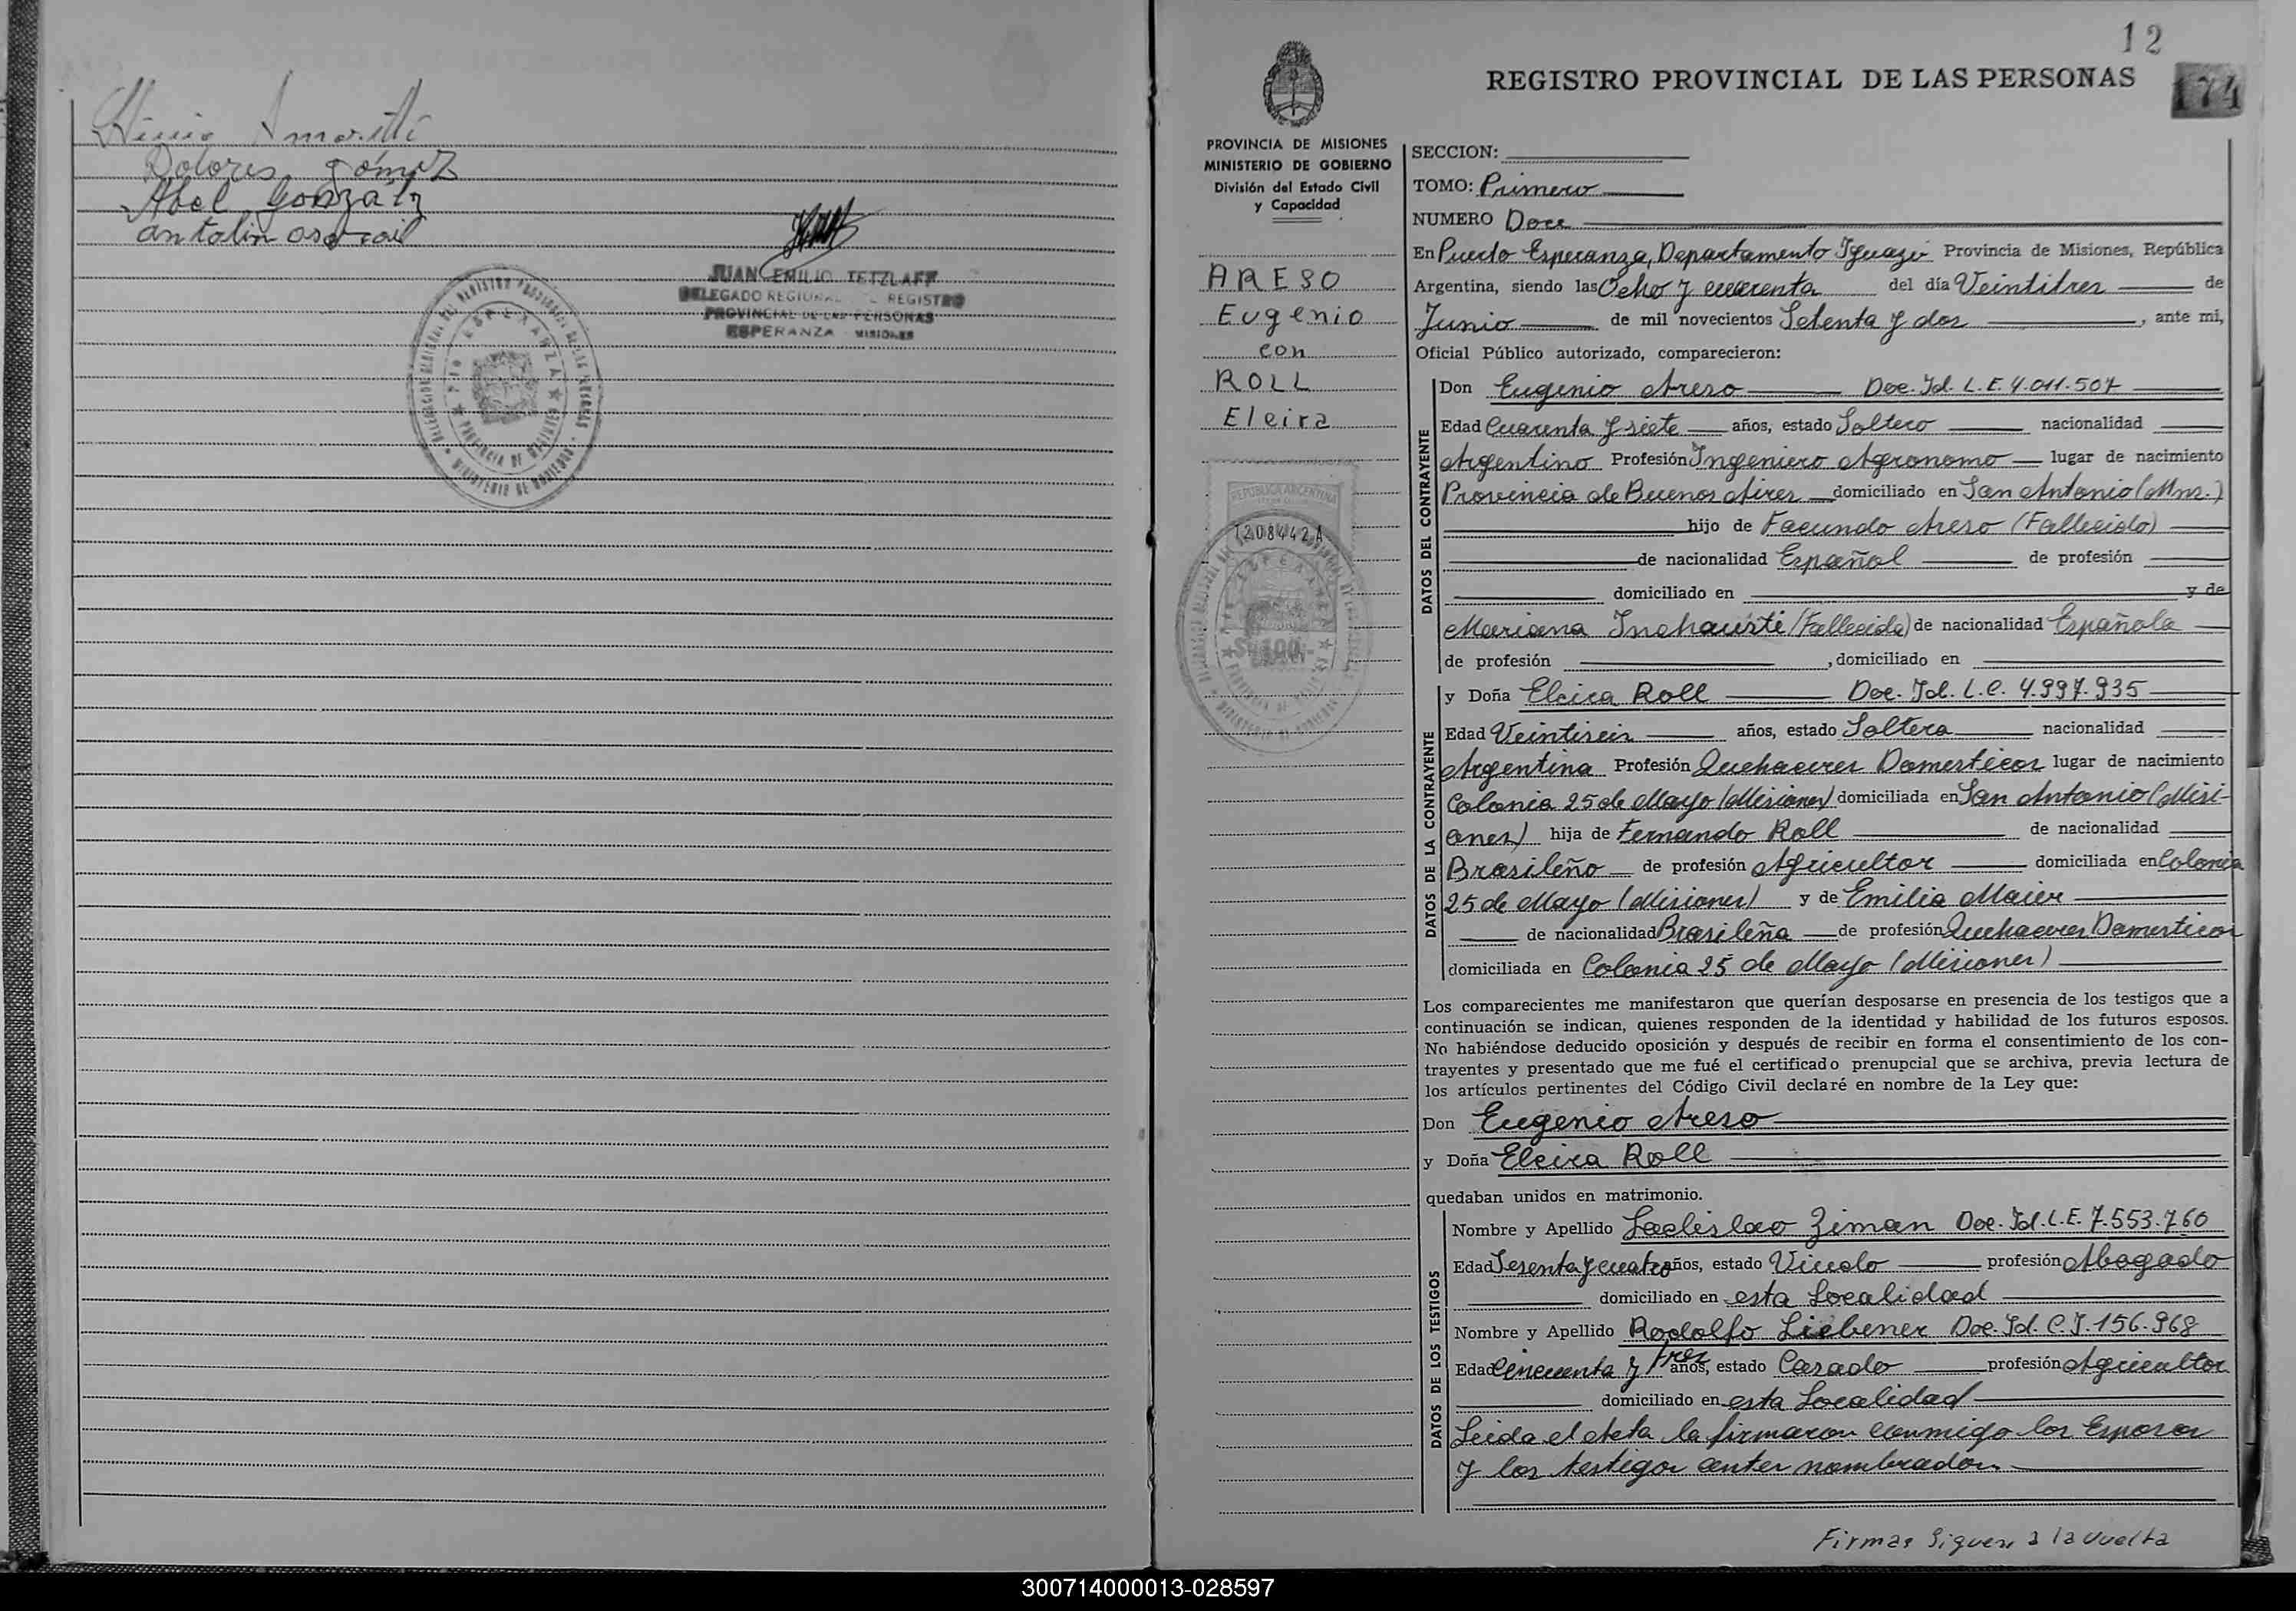 Dolores Gómez
Abel Gonzalz
antolin
JUAN EMILIO TETZLAFF
DELEGADO REGIONAL REGISTRO
PROVINCIAL DE LAS PERSONAS
ESPERANZA MISIONES
12
REGISTRO PROVINCIAL DE LAS PERSONAS
174
PROVINCIA DE MISIONES
MINISTERIO DE GOBIERNO
División del Estado Civil
y Capacidad
ARESO
Eugenio
con
ROLL
Eleira
REPUBLICA ARGENTINA
7208442A
SECCION:
TOMO: Primero
NUMERO Doce
En Puerto Esperanza, Departamento Iguazú Provincia de Misiones, República
Argentina, siendo las Ocho y cuarenta del día Veintitres de
Junio de mil novecientos Setenta y dos, ante mi,
Oficial Público autorizado, comparecieron:
DATOS DEL CONTRAYENTE
Don Eugenio Areso Doc. Id. L.E. 4.011.507
Edad Cuarenta y siete años, estado Soltero nacionalidad
Argentino Profesión Ingeniero Agronomo lugar de nacimiento
Provincia de Buenos Aires domiciliado en San Antonio (Mns.)
hijo de Facundo Areso (Fallecido)
de nacionalidad Español de profesión
domiciliado en y de
Mariana Inchausti (Fallecida) de nacionalidad Española
de profesión , domiciliado en
DATOS DE LA CONTRAYENTE
y Doña Eleira Roll Doc. Id. L.C. 4.997.935
Edad Veintiseis años, estado Soltera nacionalidad
Argentina Profesión Quehaceres Domesticos lugar de nacimiento
Colonia 25 de Mayo (Misiones) domiciliada en San Antonio (Misi-
ones) hija de Fernando Roll de nacionalidad
Brasileño de profesión Agricultor domiciliada en Colonia
25 de Mayo (Misiones) y de Emilia Maier
de nacionalidad Brasileña de profesión Quehaceres Domesticos
domiciliada en Colonia 25 de Mayo (Misiones)
Los comparecientes me manifestaron que querían desposarse en presencia de los testigos que a
continuación se indican, quienes responden de la identidad y habilidad de los futuros esposos.
No habiéndose deducido oposición y después de recibir en forma el consentimiento de los con-
trayentes y presentado que me fué el certificado prenupcial que se archiva, previa lectura de
los artículos pertinentes del Código Civil declaré en nombre de la Ley que:
Don Eugenio Areso
y Doña Eleira Roll
quedaban unidos en matrimonio.
DATOS DE LOS TESTIGOS
Nombre y Apellido Ladislao Ziman Doc. Id. L.E. 7.553.760
Edad Sesenta y cuatro años, estado Viudo profesión Abogado
domiciliado en esta Localidad
Nombre y Apellido Rodolfo Liebener Doc. Id. C.I. 156.968
Edad Cincuenta y tres años, estado Casado profesión Agricultor
domiciliado en esta Localidad
Leida el Acta la firmaron conmigo los Esposos
y los testigos antes nombrados.
Firmas Siguen a la vuelta
300714000013-028597